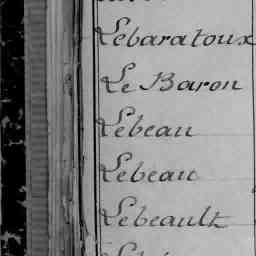 Lebaratoux
Le Baron
Lebeau
Lebeau
Lebeault